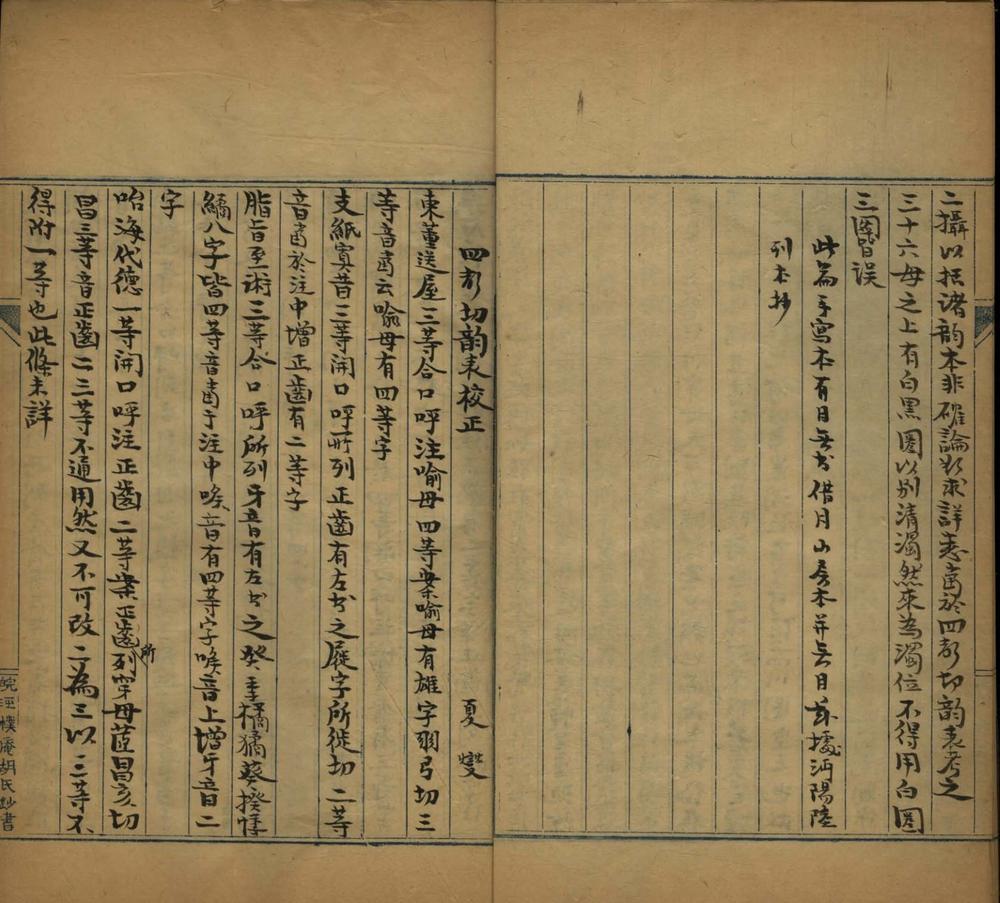 二攝以括諸韵本非確論欲求詳悉當於四聲切韵表考之
三十六母之上有白黑圈以别清濁然來為濁位不得用白圈
三圈皆误
此篇手寫本有目無書借月山房本并無目茲據沔陽陸
刊本抄
四聲切韵表校正
夏燮
東董送屋三等合口呼注喻母四等案喻母有雄字羽弓切三
等音當云喻母有四等字
支紙寘昔三等開口呼所列正齒有左书之屣字所徙切二等
音當於注中增正齒有二等字
脂旨至術三等合口呼所列牙音有左书之癸季橘獝葵揆悸
鱊八字皆四等音當于注中喉音有四等字喉音上增牙音二
字
咍海代德一等開口呼注正齒二等案正齒所列穿母茝昌亥切
昌三等音正齒二三等不通用然又不可改二為三以三等不
得附一等也此條未詳
皖涇樸盦胡氏鈔書